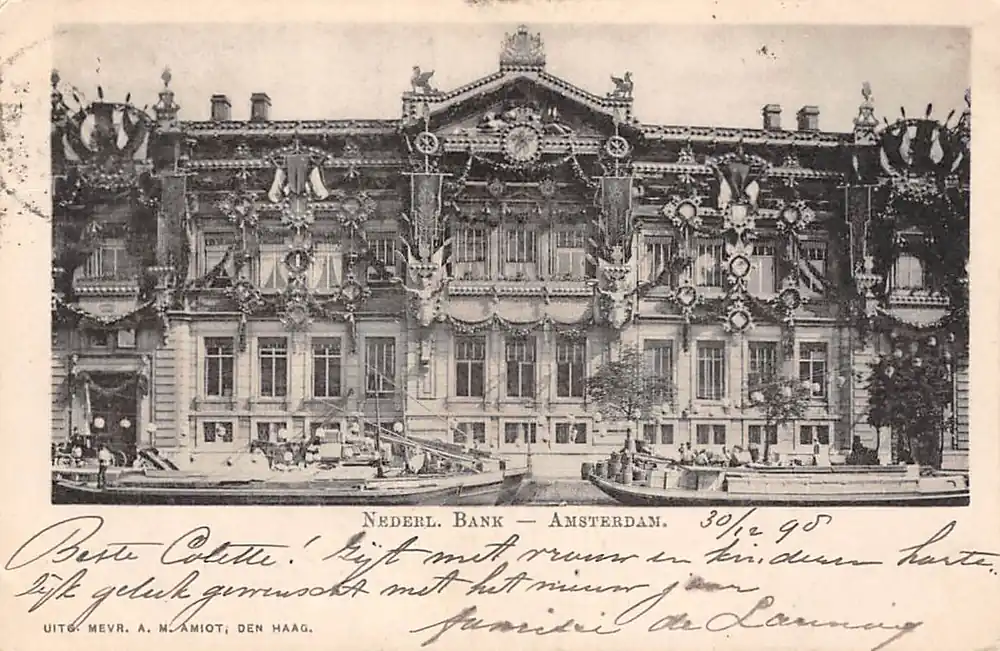 NEDERL. BANK — AMSTERDAM. 30/12 98
Beste Colette! Zijt met vrouw en kinderen harte-
lijk geluk gewenscht met het nieuw jaar
familie de
UITG. MEVR. A. M. AMIOT, DEN HAAG.